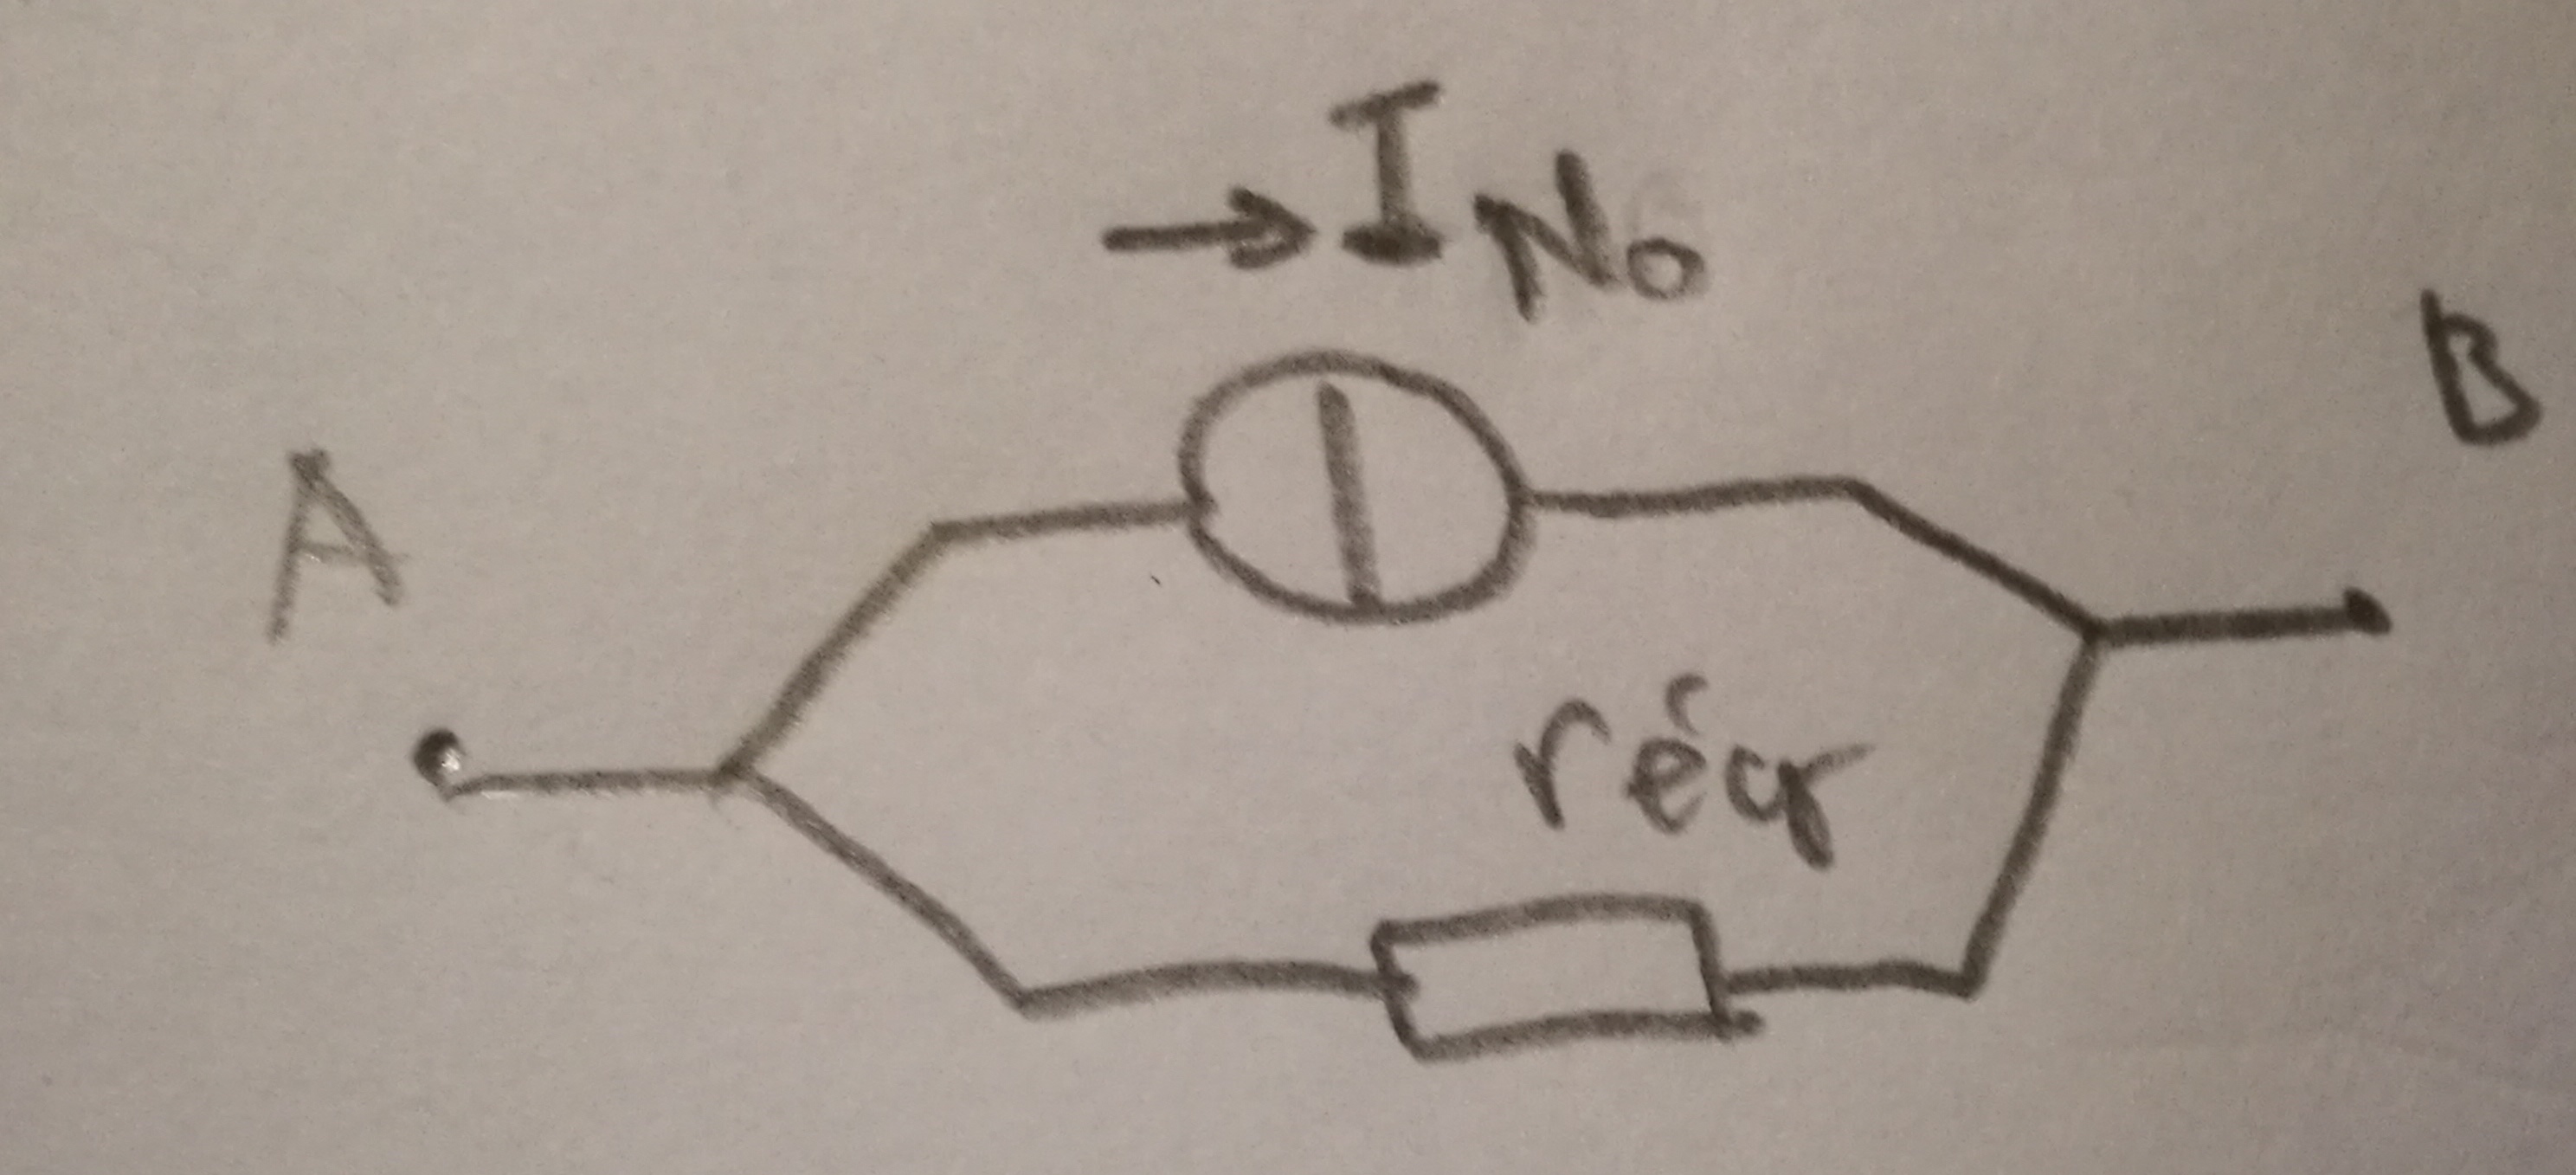 → I No
A
B
réq